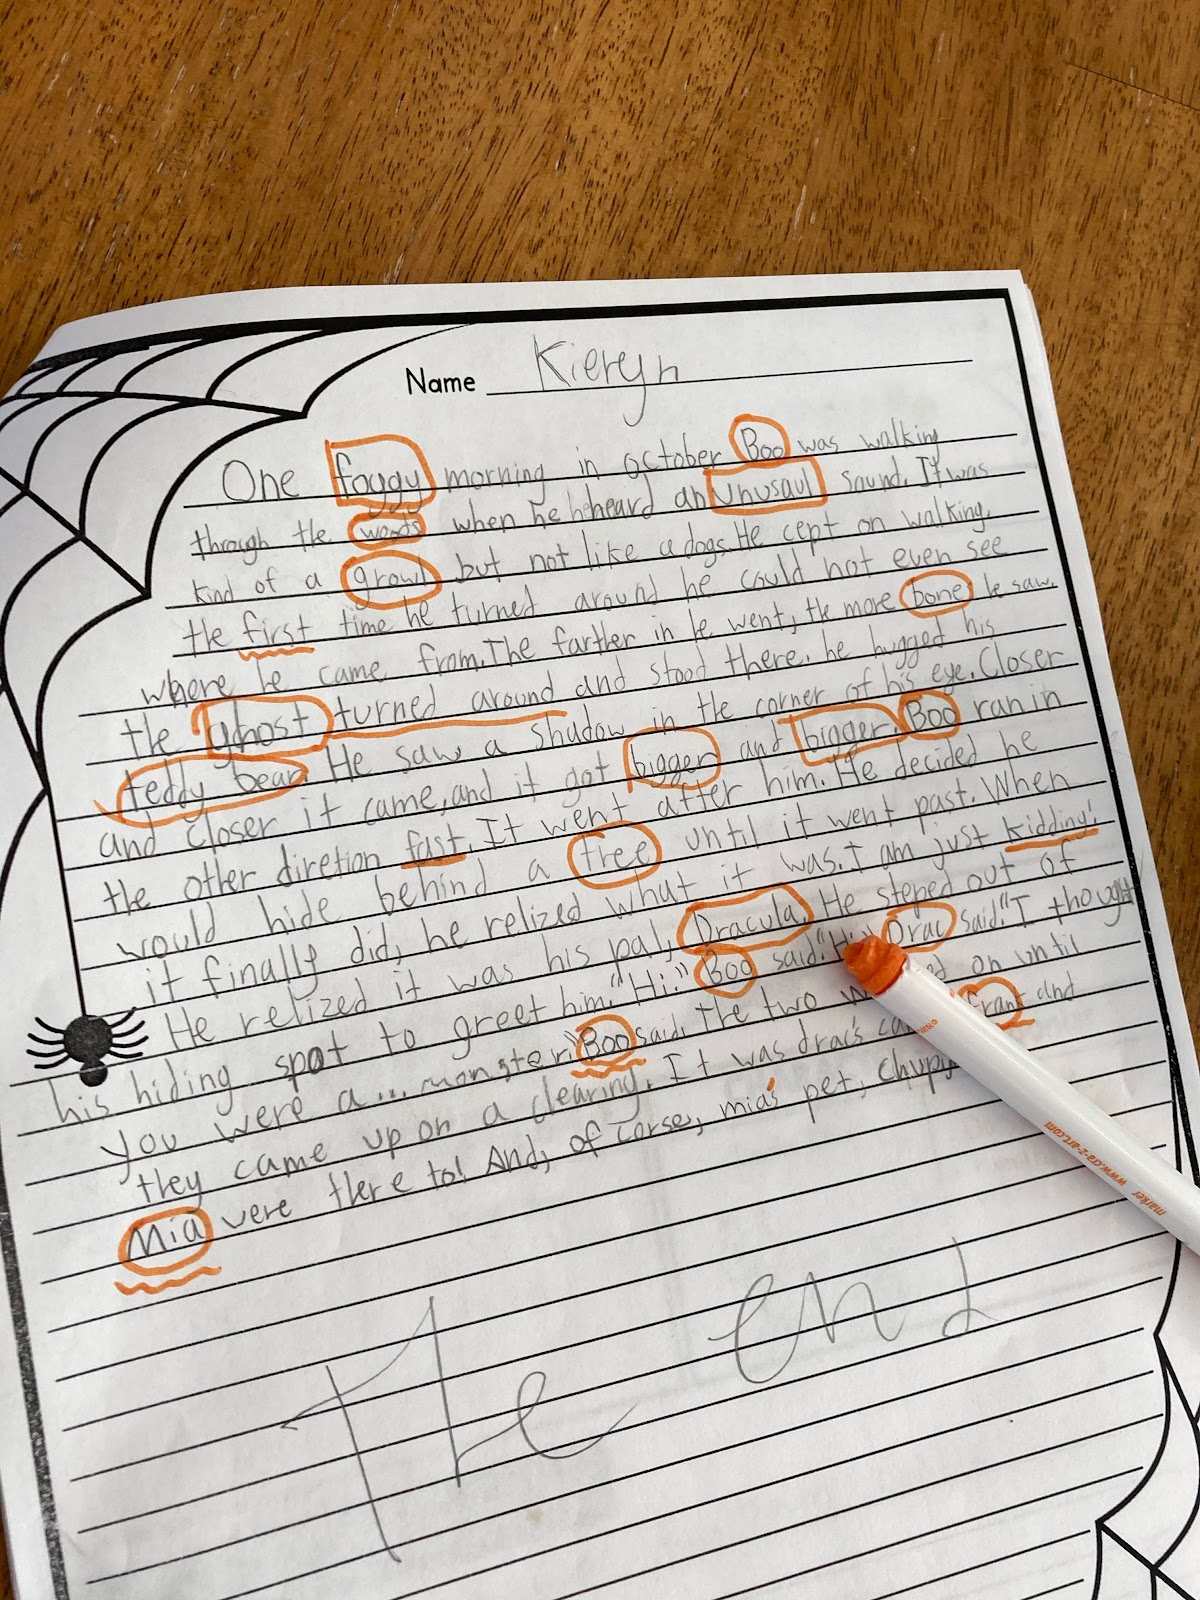 Name Kieryn
One foggy morning in october Boo was walking
through the woods when he heard an unusaul sound. It was
kind of a growl but not like a dogs. He cept on walking.
the first time he turned around he could not even see
where he came from. The farther in he went, the more bone he saw.
the ghost turned around and stood there. he hugged his
teddy bear. He saw a shadow in the corner of his eye. Closer
and closer it came, and it got bigger and bigger. Boo ran in
the other diretion fast. It went after him. He decided he
would hide behind a tree until it went past. When
it finally did, he relized what it was. I am just kidding!
He relized it was his pal, Dracula. He steped out of
his hiding spot to greet him. "Hi." Boo said. Drac said. "I thought
you were a... monster." Boo said. The two on until
they came up on a clearing. It was drac's and
Mia vere there to! And, of corse, mia's pet,
The end
marker www.cra-z-art.com